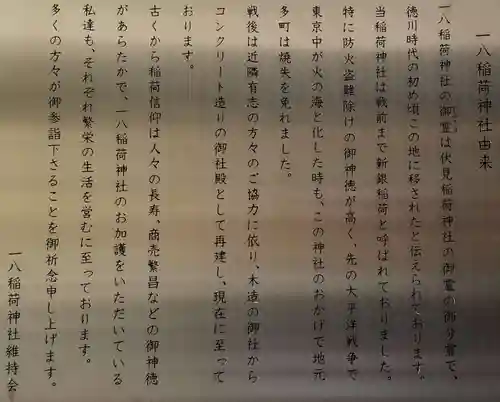 一八稲荷神社由来
一八稲荷神社の御霊は伏見稲荷神社の御霊の御分霊で、
徳川時代の初め頃この地に移されたと伝えられております。
当稲荷神社は戦前まで新銀稲荷と呼ばれておりました。
特に防火盗難除けの御神徳が高く、先の大平洋戦争で
東京中が火の海と化した時も、この神社のおかげで地元
多町は焼失を免れました。
戦後は近隣有志の方々のご協力に依り、木造の御社から
コンクリート造りの御社殿として再建し、現在に至って
おります。
古くから稲荷信仰は人々の長寿、商売繁昌などの御神徳
があらたかで、一八稲荷神社のお加護をいただいている
私達も、それぞれ繁栄の生活を営むに至っております。
多くの方々が御参詣下さることを御祈念申し上げます。
一八稲荷神社維持会